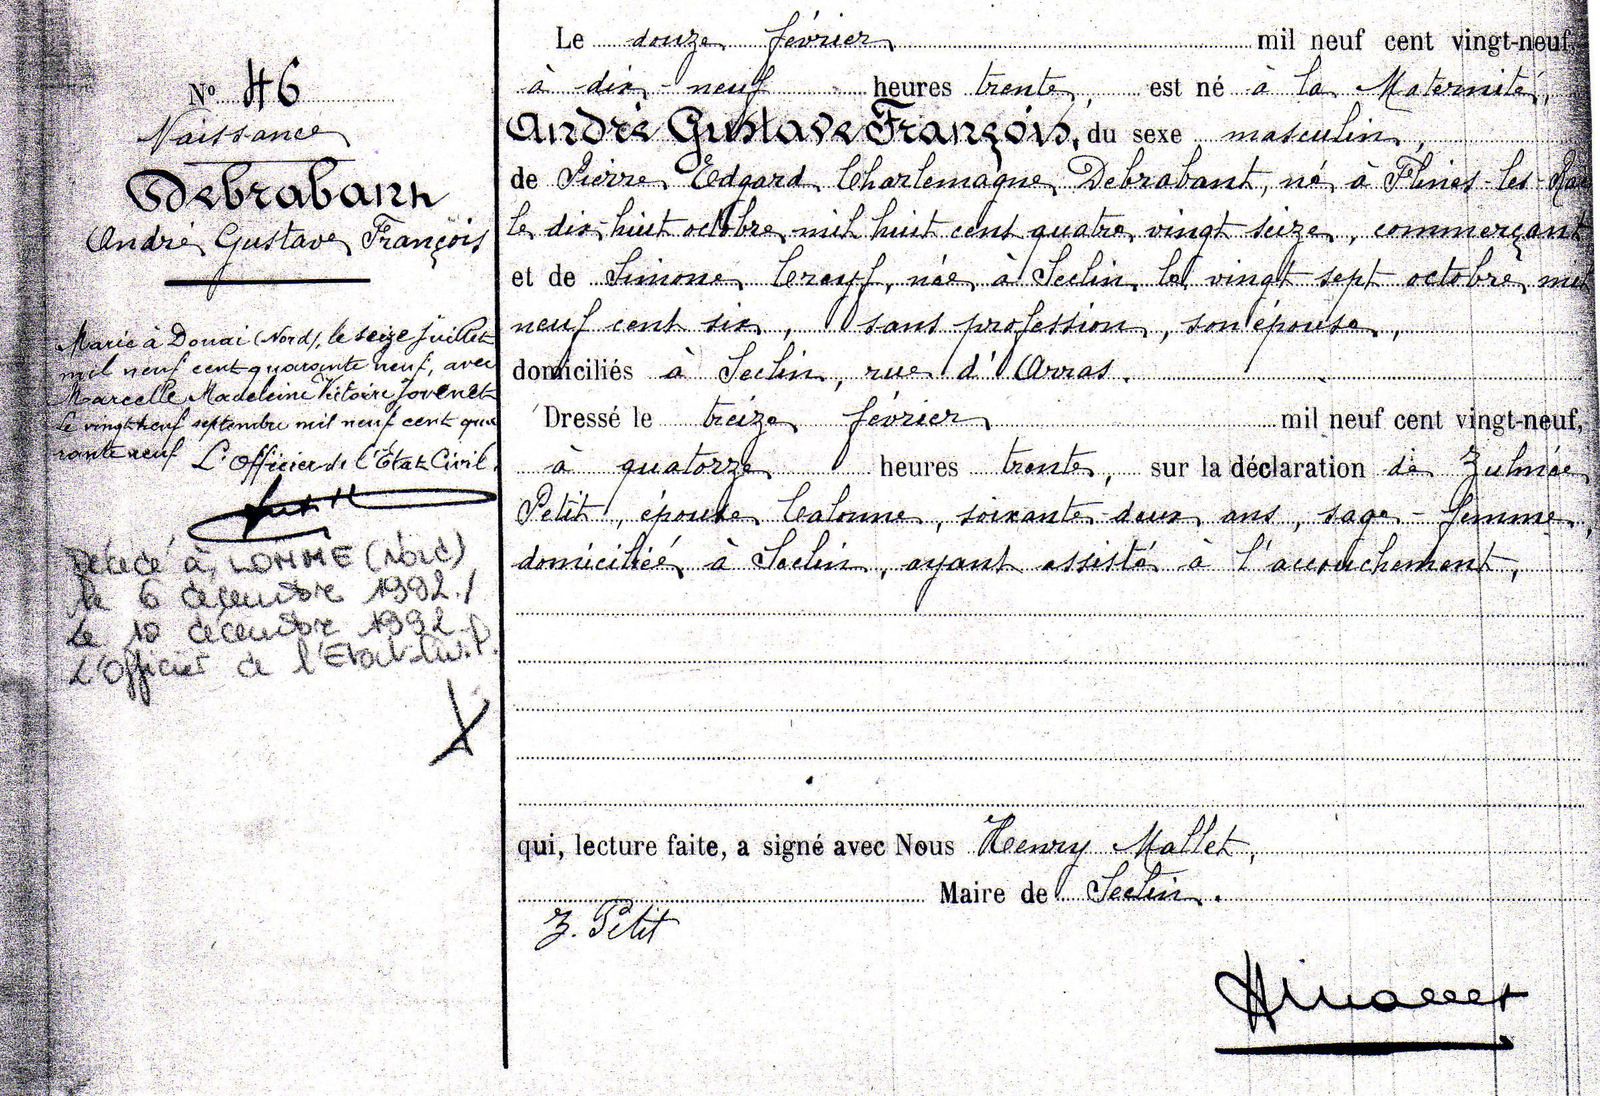 N° 46
Naissance
Debrabant
André Gustave François
Marié à Douai (Nord), le seize juillet
mil neuf cent quarante neuf, avec
Marcelle Madeleine Victoire Jovenet
Le vingt neuf septembre mil neuf cent qua
rante neuf L'Officier de l'État Civil.
Décédé à LOMME (Nord)
le 6 décembre 1992./
Le 10 décembre 1992.
L'Officier de l'Etat-Civil.
Le douze février mil neuf cent vingt-neuf,
à dix-neuf heures trente, est né à la Maternité,
André Gustave François, du sexe masculin,
de Pierre Edgard Charlemagne Debrabant, né à Flines-les-
le dix-huit octobre mil huit cent quatre vingt seize, commerçant
et de Simone, née à Seclin le vingt sept octobre mil
neuf cent six, sans profession, son épouse,
domiciliés à Seclin, rue d'Arras.
Dressé le treize février mil neuf cent vingt-neuf,
à quatorze heures trente, sur la déclaration de Zulmée
Petit, épouse Calonne, soixante-deux ans, sage-femme,
domiciliée à Seclin, ayant assisté à l'accouchement,
qui, lecture faite, a signé avec Nous Henry Mallet,
Maire de Seclin.
Z. Petit